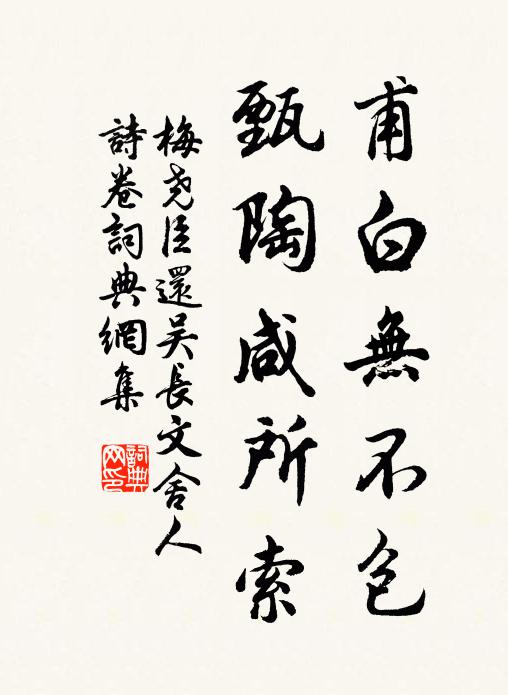 甫白無不包
甄陶咸所索
梅堯臣還吴長文舍人
詩卷詞典網集
詞典网印